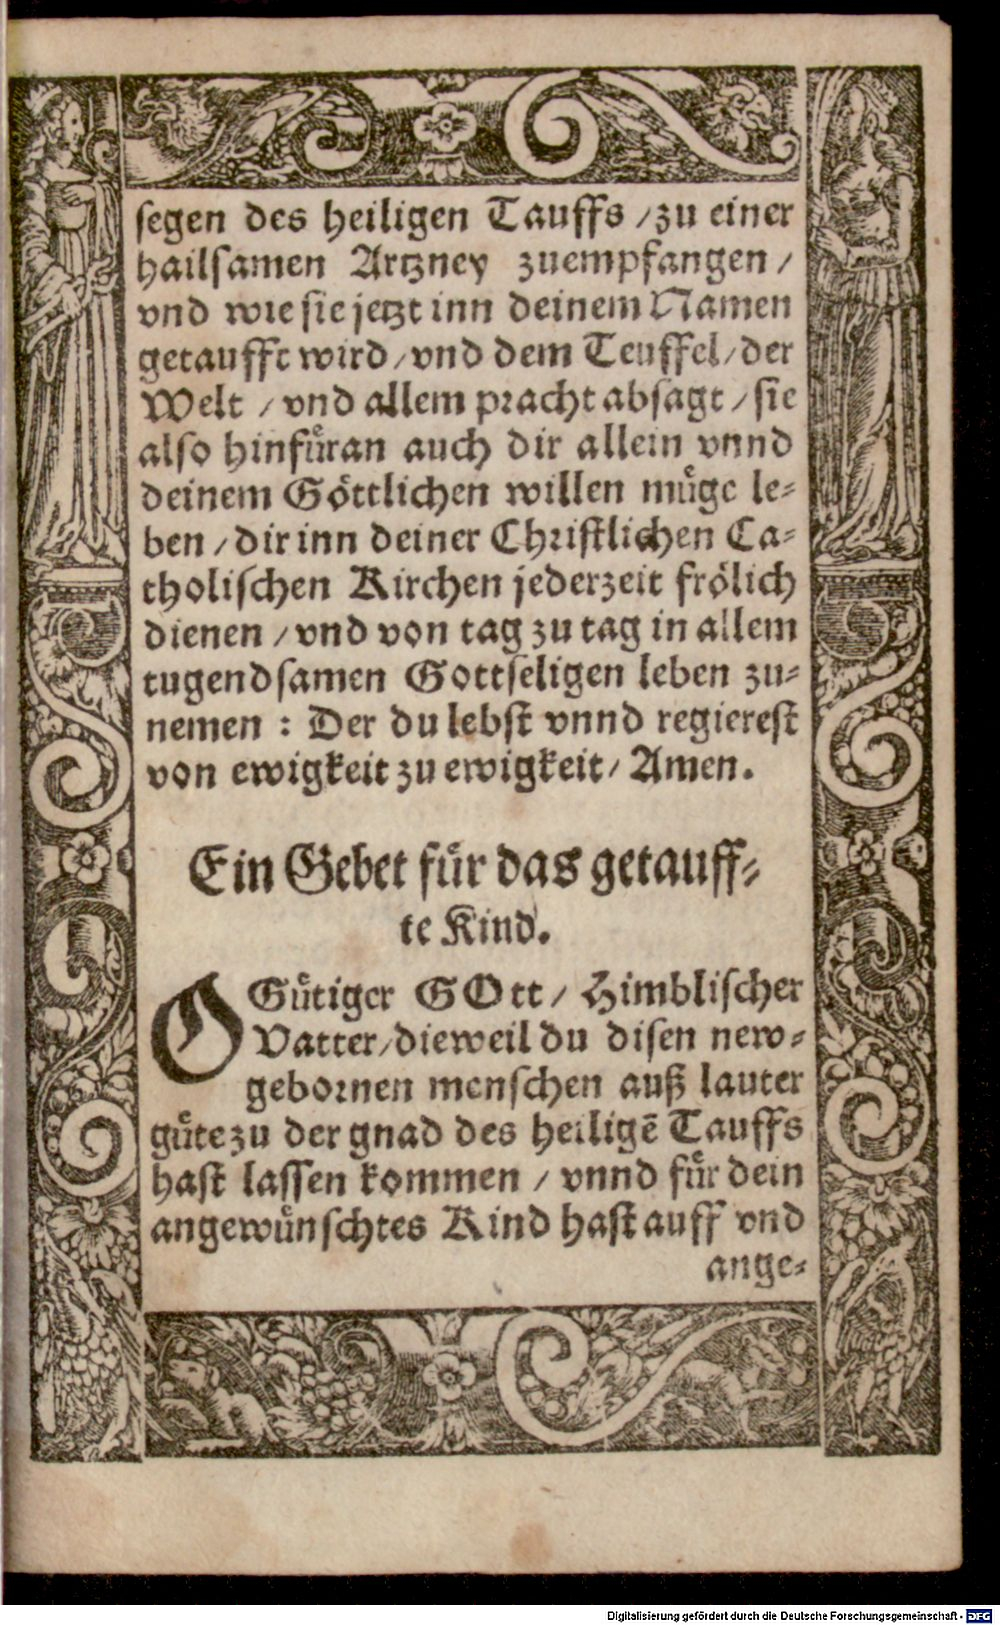 segen des heiligen Tauffs / zu einer
hailsamen Artzney zuempfangen /
vnd wie sie jetzt inn deinem Namen
getaufft wird / vnd dem Teuffel / der
Welt / vnd allem pracht absagt / sie
also hinfůran auch dir allein vnnd
deinem Göttlichen willen můge le-
ben / dir inn deiner Christlichen Ca-
tholischen Kirchen jederzeit frölich
dienen / vnd von tag zu tag in allem
tugendsamen Gottseligen leben zu-
nemen : Der du lebst vnnd regierest
von ewigkeit zu ewigkeit / Amen.
Ein Gebet fůr das getauff-
te Kind.
O Gůtiger GOtt / Himblischer
Vatter / dieweil du disen new-
gebornen menschen auß lauter
gůte zu der gnad des heiligē Tauffs
hast lassen kommen / vnnd fůr dein
angewůnschtes Kind hast auff vnd
ange-
Digitalisierung gefördert durch die Deutsche Forschungsgemeinschaft - DFG